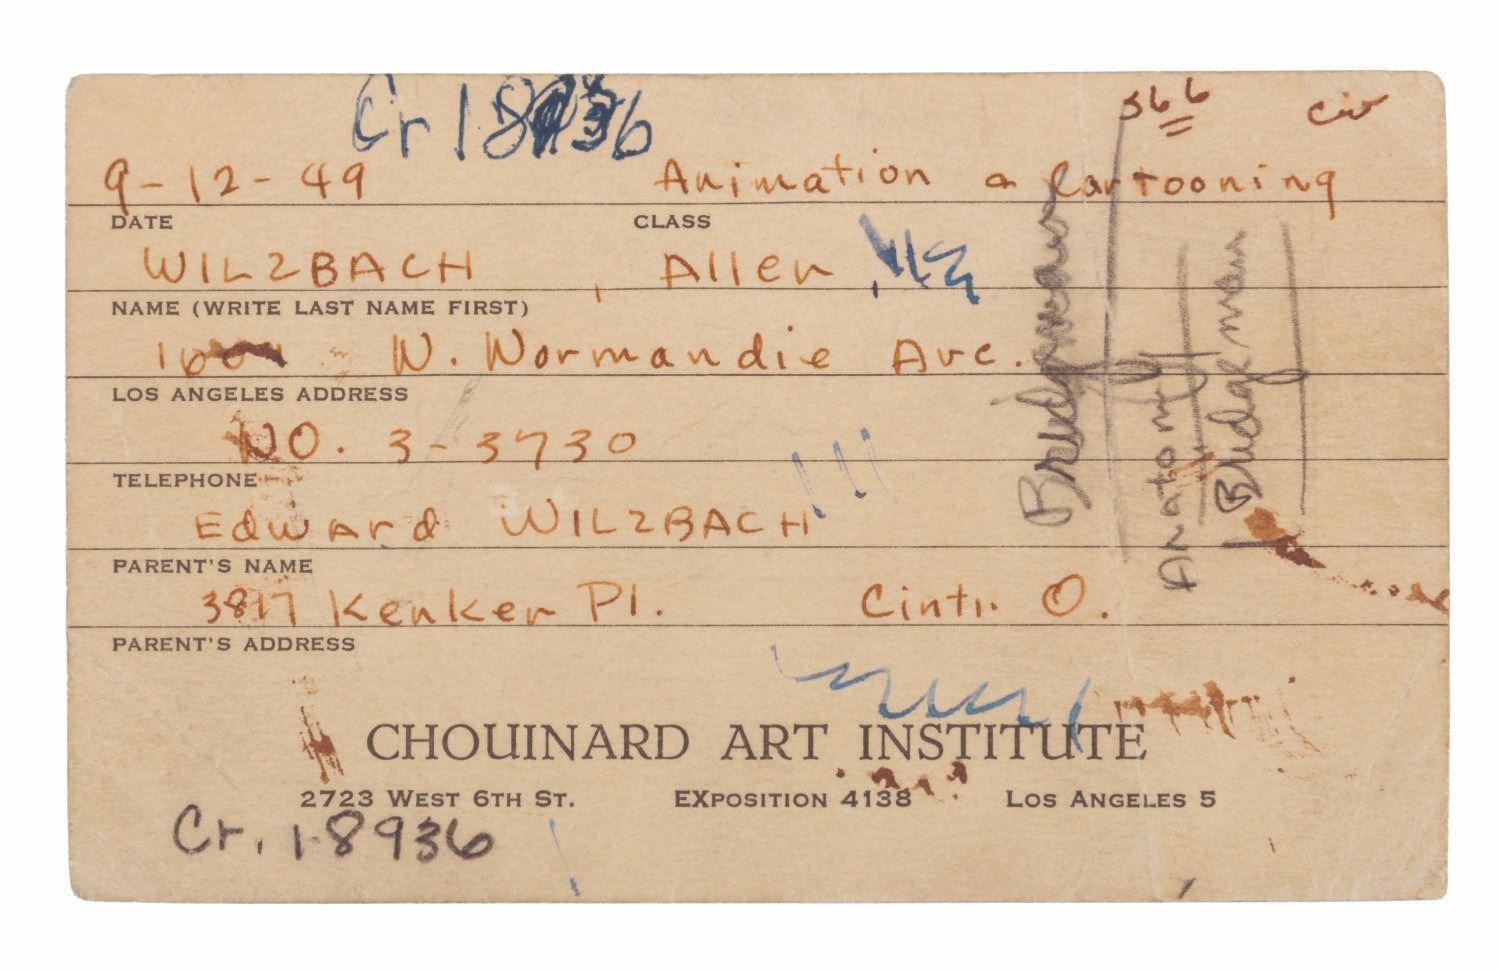 Cr 18936
566
9-12-49 Animation & Cartooning
DATE CLASS
WILZBACH, Allen,
NAME (WRITE LAST NAME FIRST)
N. Normandie Ave.
LOS ANGELES ADDRESS
NO. 3-3730
TELEPHONE
Edward WILZBACH
PARENT'S NAME
3817 Kenker Pl. Cinti. O.
PARENT'S ADDRESS
Bridgman
Anatomy
Bridgeman
CHOUINARD ART INSTITUTE
2723 WEST 6TH ST. EXPOSITION 4138 LOS ANGELES 5
Cr. 18936